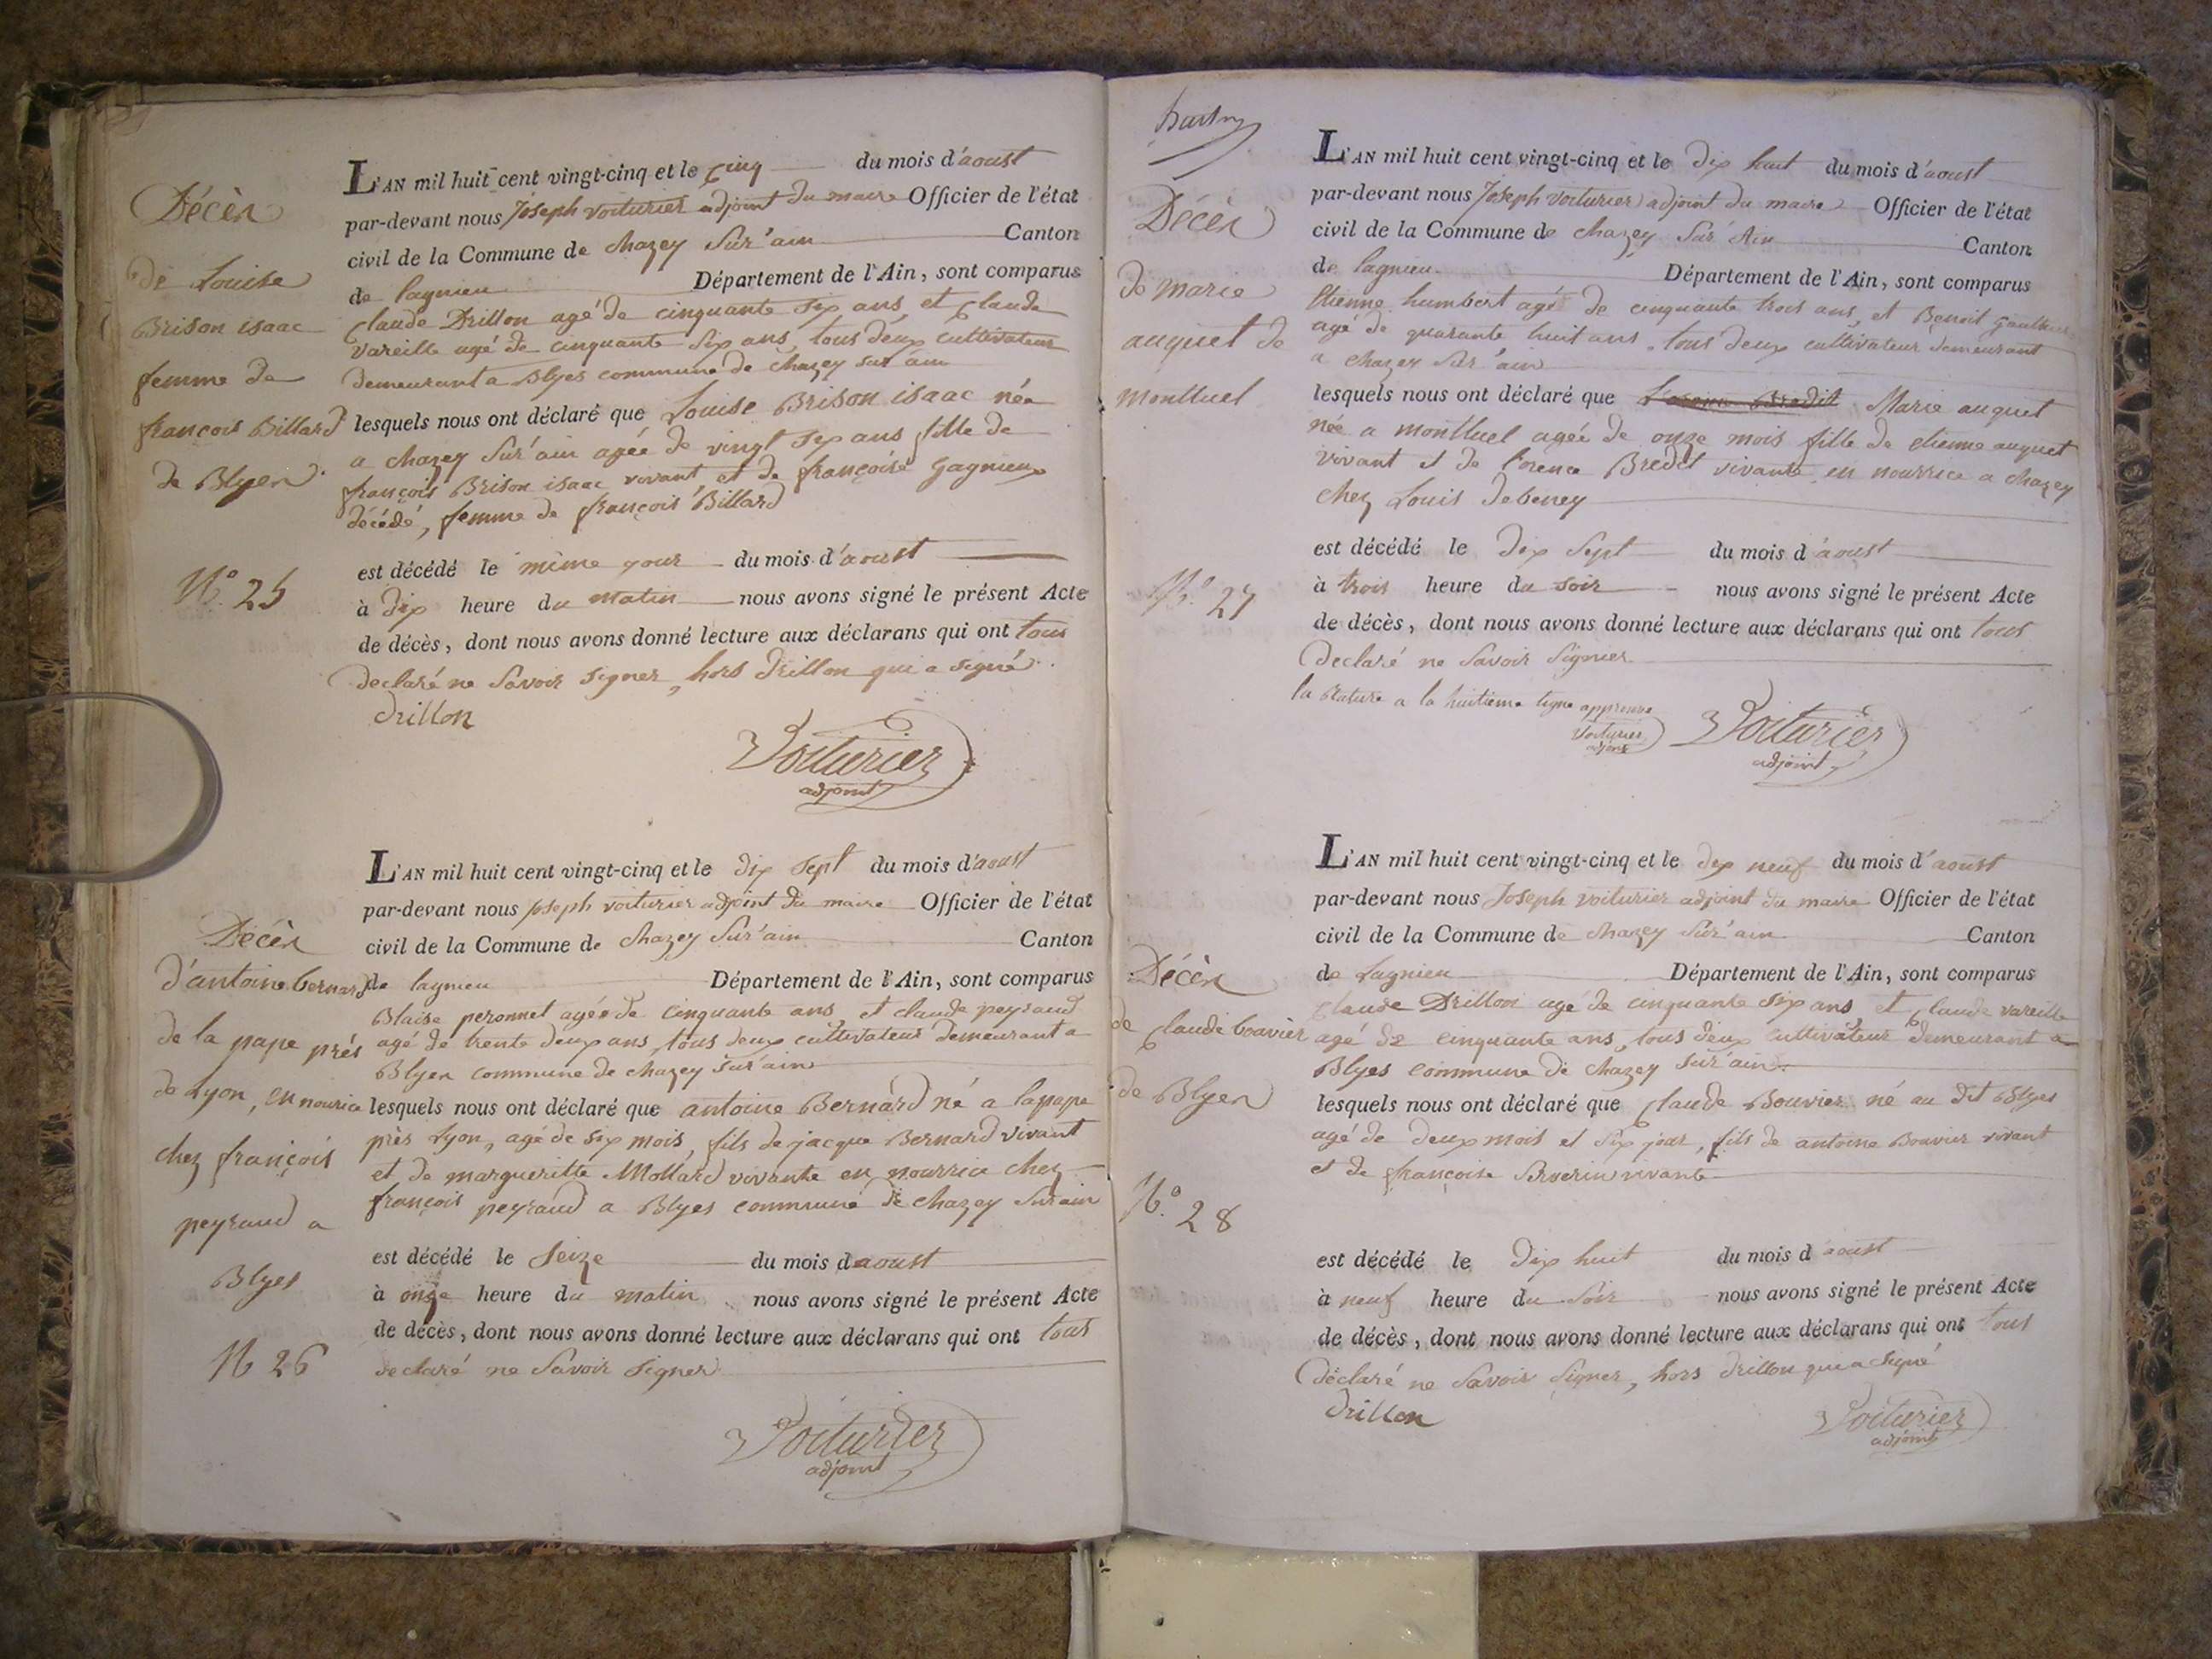 Décès
de Louise
Brison isaac
femme de
françois Billard
de Blyes
N.º 25
L'AN mil huit cent vingt-cinq et le cinq du mois d'aoust
par-devant nous Joseph voiturier adjoint du maire Officier de l'état
civil de la Commune de chazey Sur'ain Canton
de lagnieu Département de l'Ain, sont comparus
claude Drillon agé de cinquante six ans, et claude
vareille agé de cinquante six ans, tous deux cultivateur
demeurant a Blyes commune de chazey sur ain
lesquels nous ont déclaré que Louise Brison isaac née
a chazey Sur'ain agée de vingt sex ans fille de
françois Brison isaac vivant et de françoise gagnieux
décédé, femme de françois Billard
est décédé le même jour du mois d'aoust
à dix heure du matin nous avons signé le présent Acte
de décès, dont nous avons donné lecture aux déclarans qui ont tous
declaré ne Savoir signer, hors drillon qui a signé
drillon
Voiturier
adjoint
Décès
d'antoine bernard
de la pape prés
de Lyon, en nourice
chez françois
peyraud a
Blyes
N 26
L'AN mil huit cent vingt-cinq et le dix sept du mois d'aoust
par-devant nous joseph voiturier adjoint du maire Officier de l'état
civil de la Commune de chazey Sur'ain Canton
de lagnieu Département de l'Ain, sont comparus
Blaise peronnet agée de cinquante ans, et claude peyraud
agé de trente deux ans, tous deux cultivateur demeurant a
Blyes commune de chazey sur'ain
lesquels nous ont déclaré que antoine Bernard né a lapape
près Lyon, agé de six mois, fils de jacque Bernard vivant
et de margueritte Mollard vivante en nourrice chez
françois peyraud a Blyes commune de chazey Surain
est décédé le Seize du mois d'aoust
à onze heure du matin nous avons signé le présent Acte
de décès, dont nous avons donné lecture aux déclarans qui ont tous
declaré ne Savoir signer
Voiturier
adjoint
Décès
de marie
auguet de
montluel
N.º 27
L'AN mil huit cent vingt-cinq et le dix huit du mois d'aoust
par-devant nous Joseph voiturier adjoint du maire Officier de l'état
civil de la Commune de chazey Sur Ain Canton
de lagnieu Département de l'Ain, sont comparus
Etienne humbert agé de cinquante trois ans, et Benoit
agé de quarante huit ans, tous deux cultivateur demeurant
a chazey Sur'ain
lesquels nous ont déclaré que Marie auguet
née a montluel agée de onze mois fille de etienne auguet
vivant et de Lorence Bredit vivante, en nourrice a chazey
chez Louis debeney
est décédé le dix Sept du mois d'aoust
à trois heure du soir nous avons signé le présent Acte
de décès, dont nous avons donné lecture aux déclarans qui ont tous
declaré ne Savoir Signer
la Rature a la huitieme ligne approuve
Voiturier
adjoint
Voiturier
adjoint
Décès
de claude bouvier
de Blyes
N.º 28
L'AN mil huit cent vingt-cinq et le dix neuf du mois d'aoust
par-devant nous Joseph voiturier adjoint du maire Officier de l'état
civil de la Commune de chazey Sur'ain Canton
de Lagnieu Département de l'Ain, sont comparus
claude Drillon agé de cinquante six ans, et claude vareille
agé de cinquante ans, tous deux cultivateur demeurant a
Blyes commune de chazey Sur'ain
lesquels nous ont déclaré que claude Bouvier né au dit Blyes
agé de deux mois et six jour, fils de antoine Bouvier vivant
et de françoise vivante
est décédé le dix huit du mois d'aoust
à neuf heure du Soir nous avons signé le présent Acte
de décès, dont nous avons donné lecture aux déclarans qui ont tous
déclaré ne Savoir Signer, hors drillon qui a signé
Drillon
Voiturier
adjoint